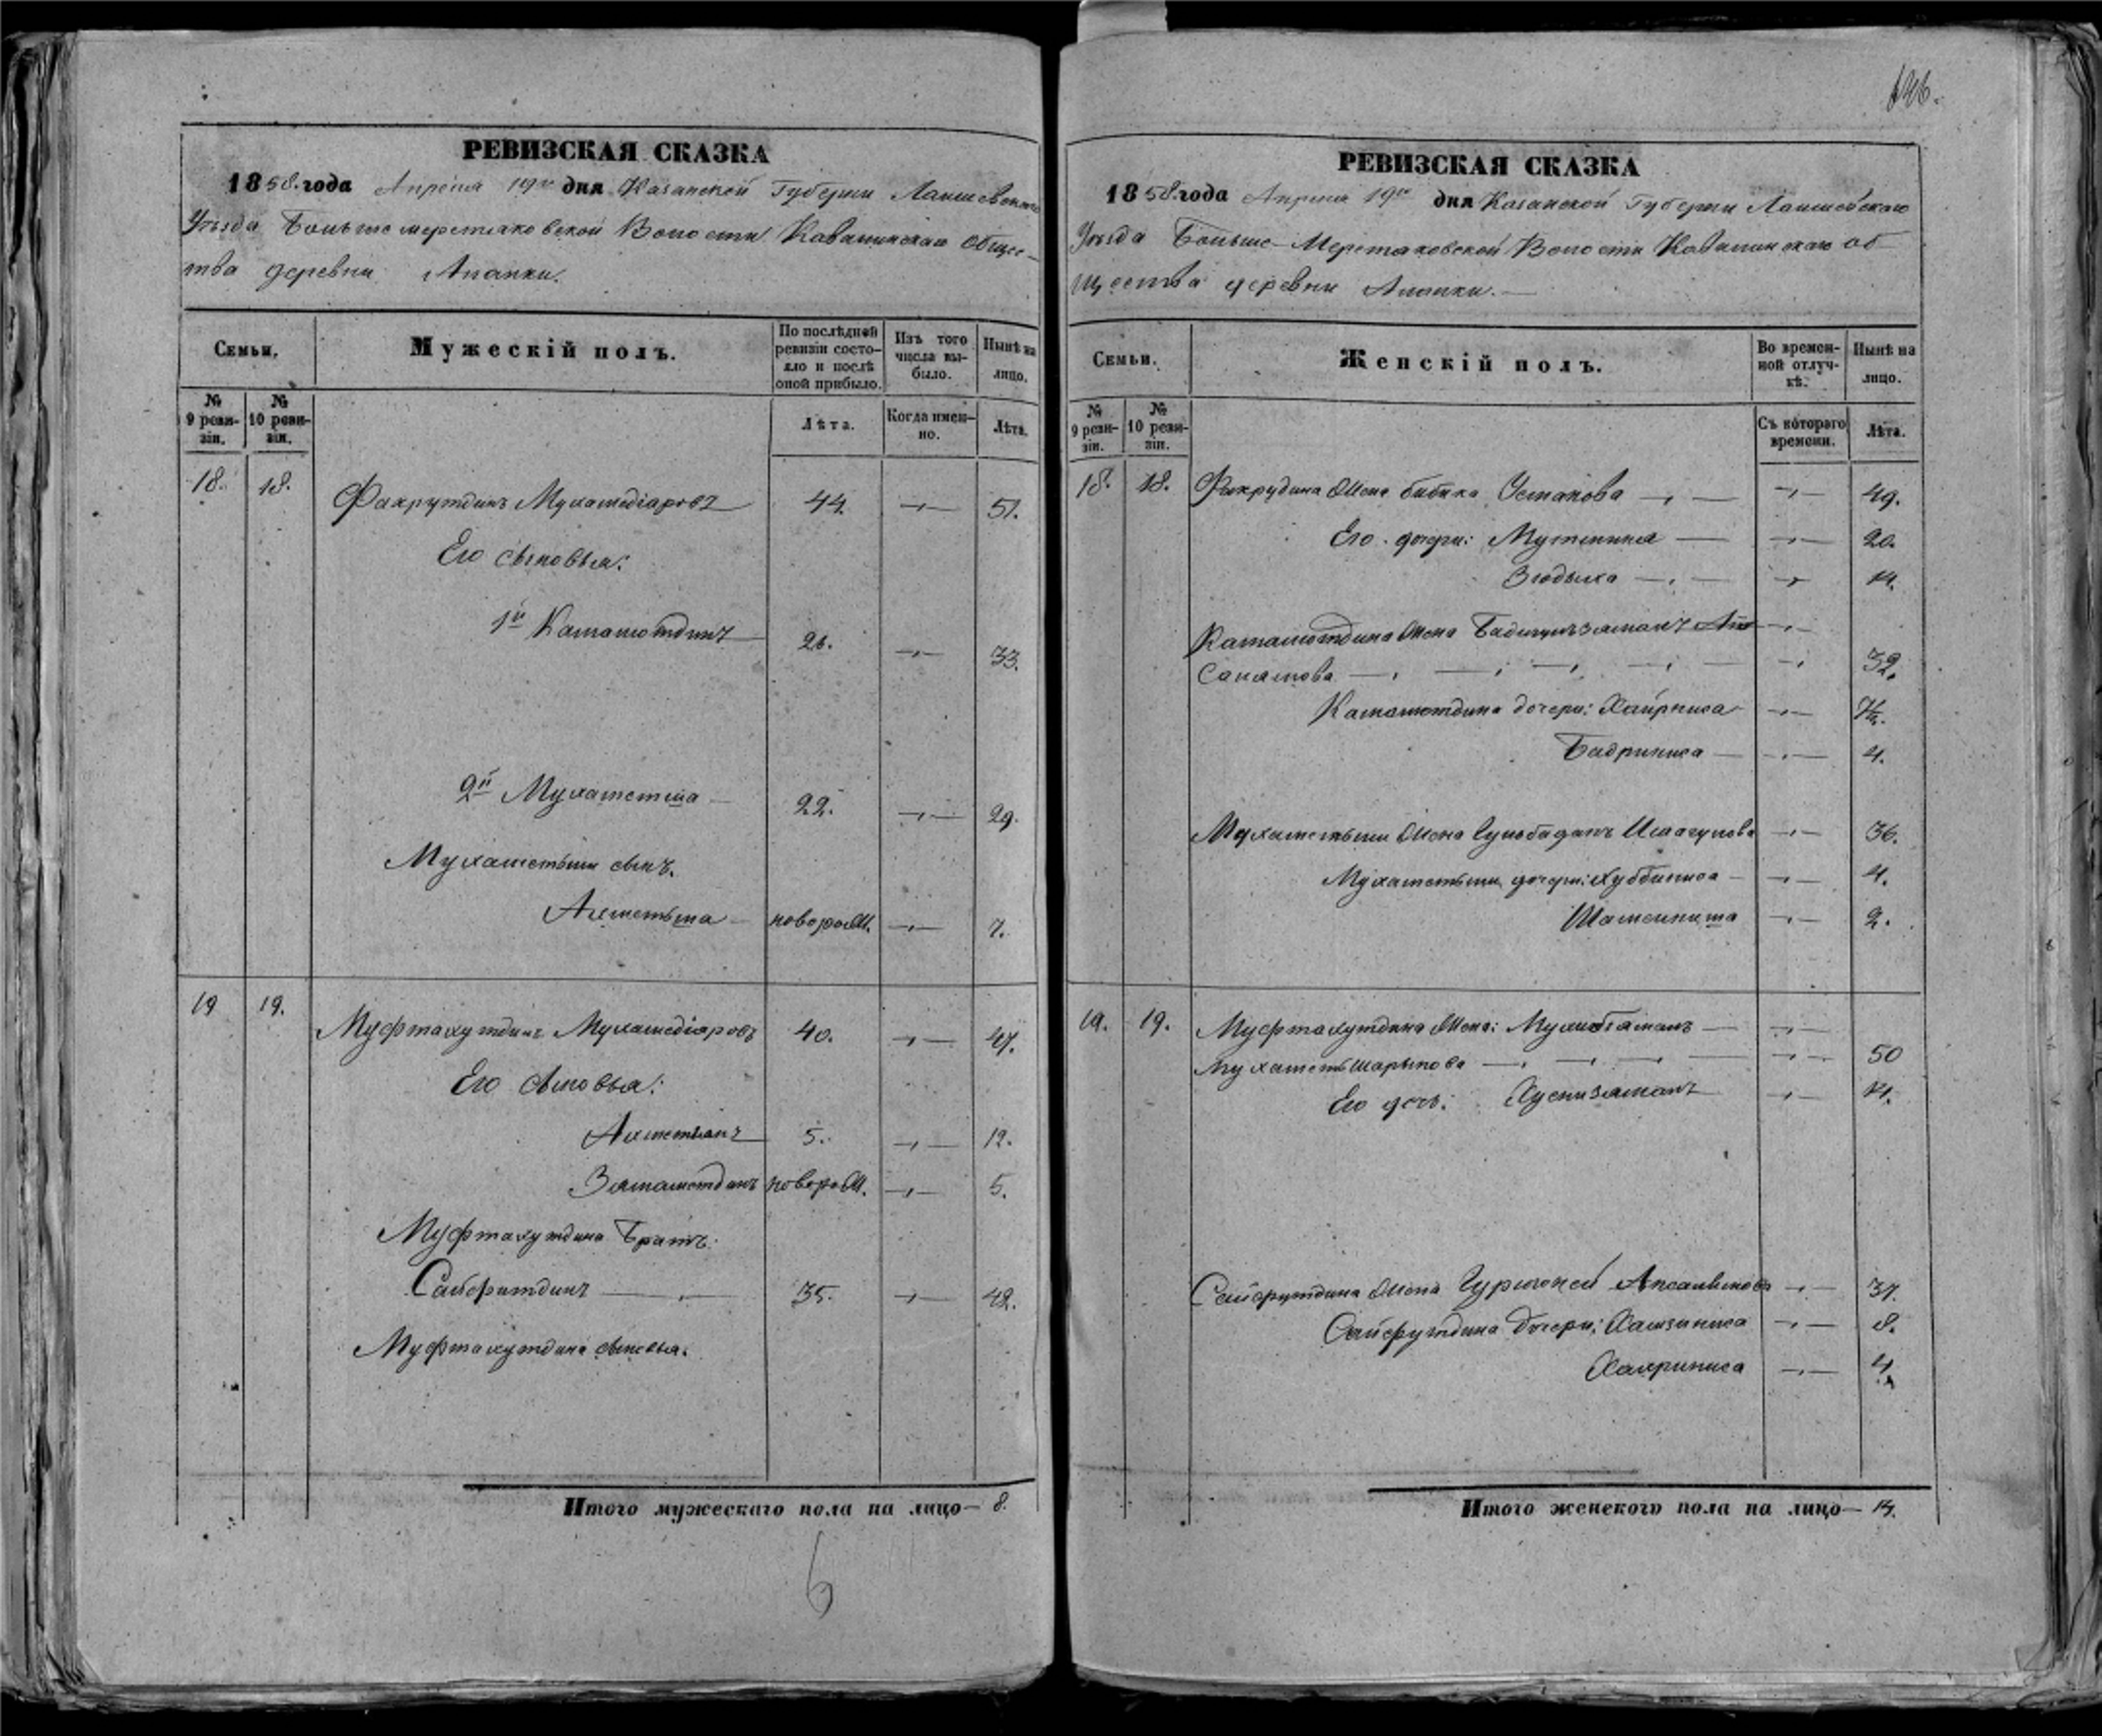 РЕВИЗСКАЯ СКАЗКА
1858. года Апреля 19го дня Казанской Губерни Лаишевскаго
Уѣзда Больше меретяковской Волости Кавалинскаго Общес-
тва деревни Апалки.
Семьи.
Мужескій полъ.
По послѣдней ревизіи состояло и послѣ оной прибыло.
Изъ того числа выбыло.
Нынѣ на лицо.
№ 9 ревизіи.
№ 10 ревизіи.
Лѣта.
Когда именно.
Лѣта.
18. 18. Фахрутдинъ Мухамедіаровъ 44. 51.
Его сыновья:
1й Камалютдинъ 26. 33.
2й Мухаметша 22. 29.
Мухаметьши сынъ.
Ахметьша новорож. 7.
19 19. Муфтахутдинъ Мухамедіаровъ 40. 47.
Его сыновья:
Ахметьянъ 5. 12.
Замалютдинъ новорож. 5.
Муфтахутдина Братъ:
Сайфитдинъ 35. 42.
Муфтахутдина сыновья.
Итого мужескаго пола на лицо— 8.
6
146.
РЕВИЗСКАЯ СКАЗКА
1858. года Апреля 19го дня Казанской Губерни Лаишевскаго
Уѣзда Больше-Меретяковской Волости Кавалинскаго об
щества деревни Апалки.—
Семьи.
Женскій полъ.
Во временной отлучкѣ.
Нынѣ на лицо.
№ 9 ревизіи.
№ 10 ревизіи.
Съ котораго времени.
Лѣта.
18. 18. Факрудина Жена бибика Усманова 49.
Его дочери: 20.
Зюдыха 14.
Камалютдина Жена
32.
Камалютдина дочери: Хайрниса
Бадриниса 4.
Мухаметьши Жена Гульбаданъ 36.
Мухаметьши дочери: Хуббиниса 4.
2.
19. 19. Муфтахутдина Жена:
Мухаметьшарыпова 50
Его дочь: Хуснизаманъ 14.
Сайфутдина Жена 37.
Сайфутдина дочери: 8.
4.
Итого женского пола на лицо— 14.